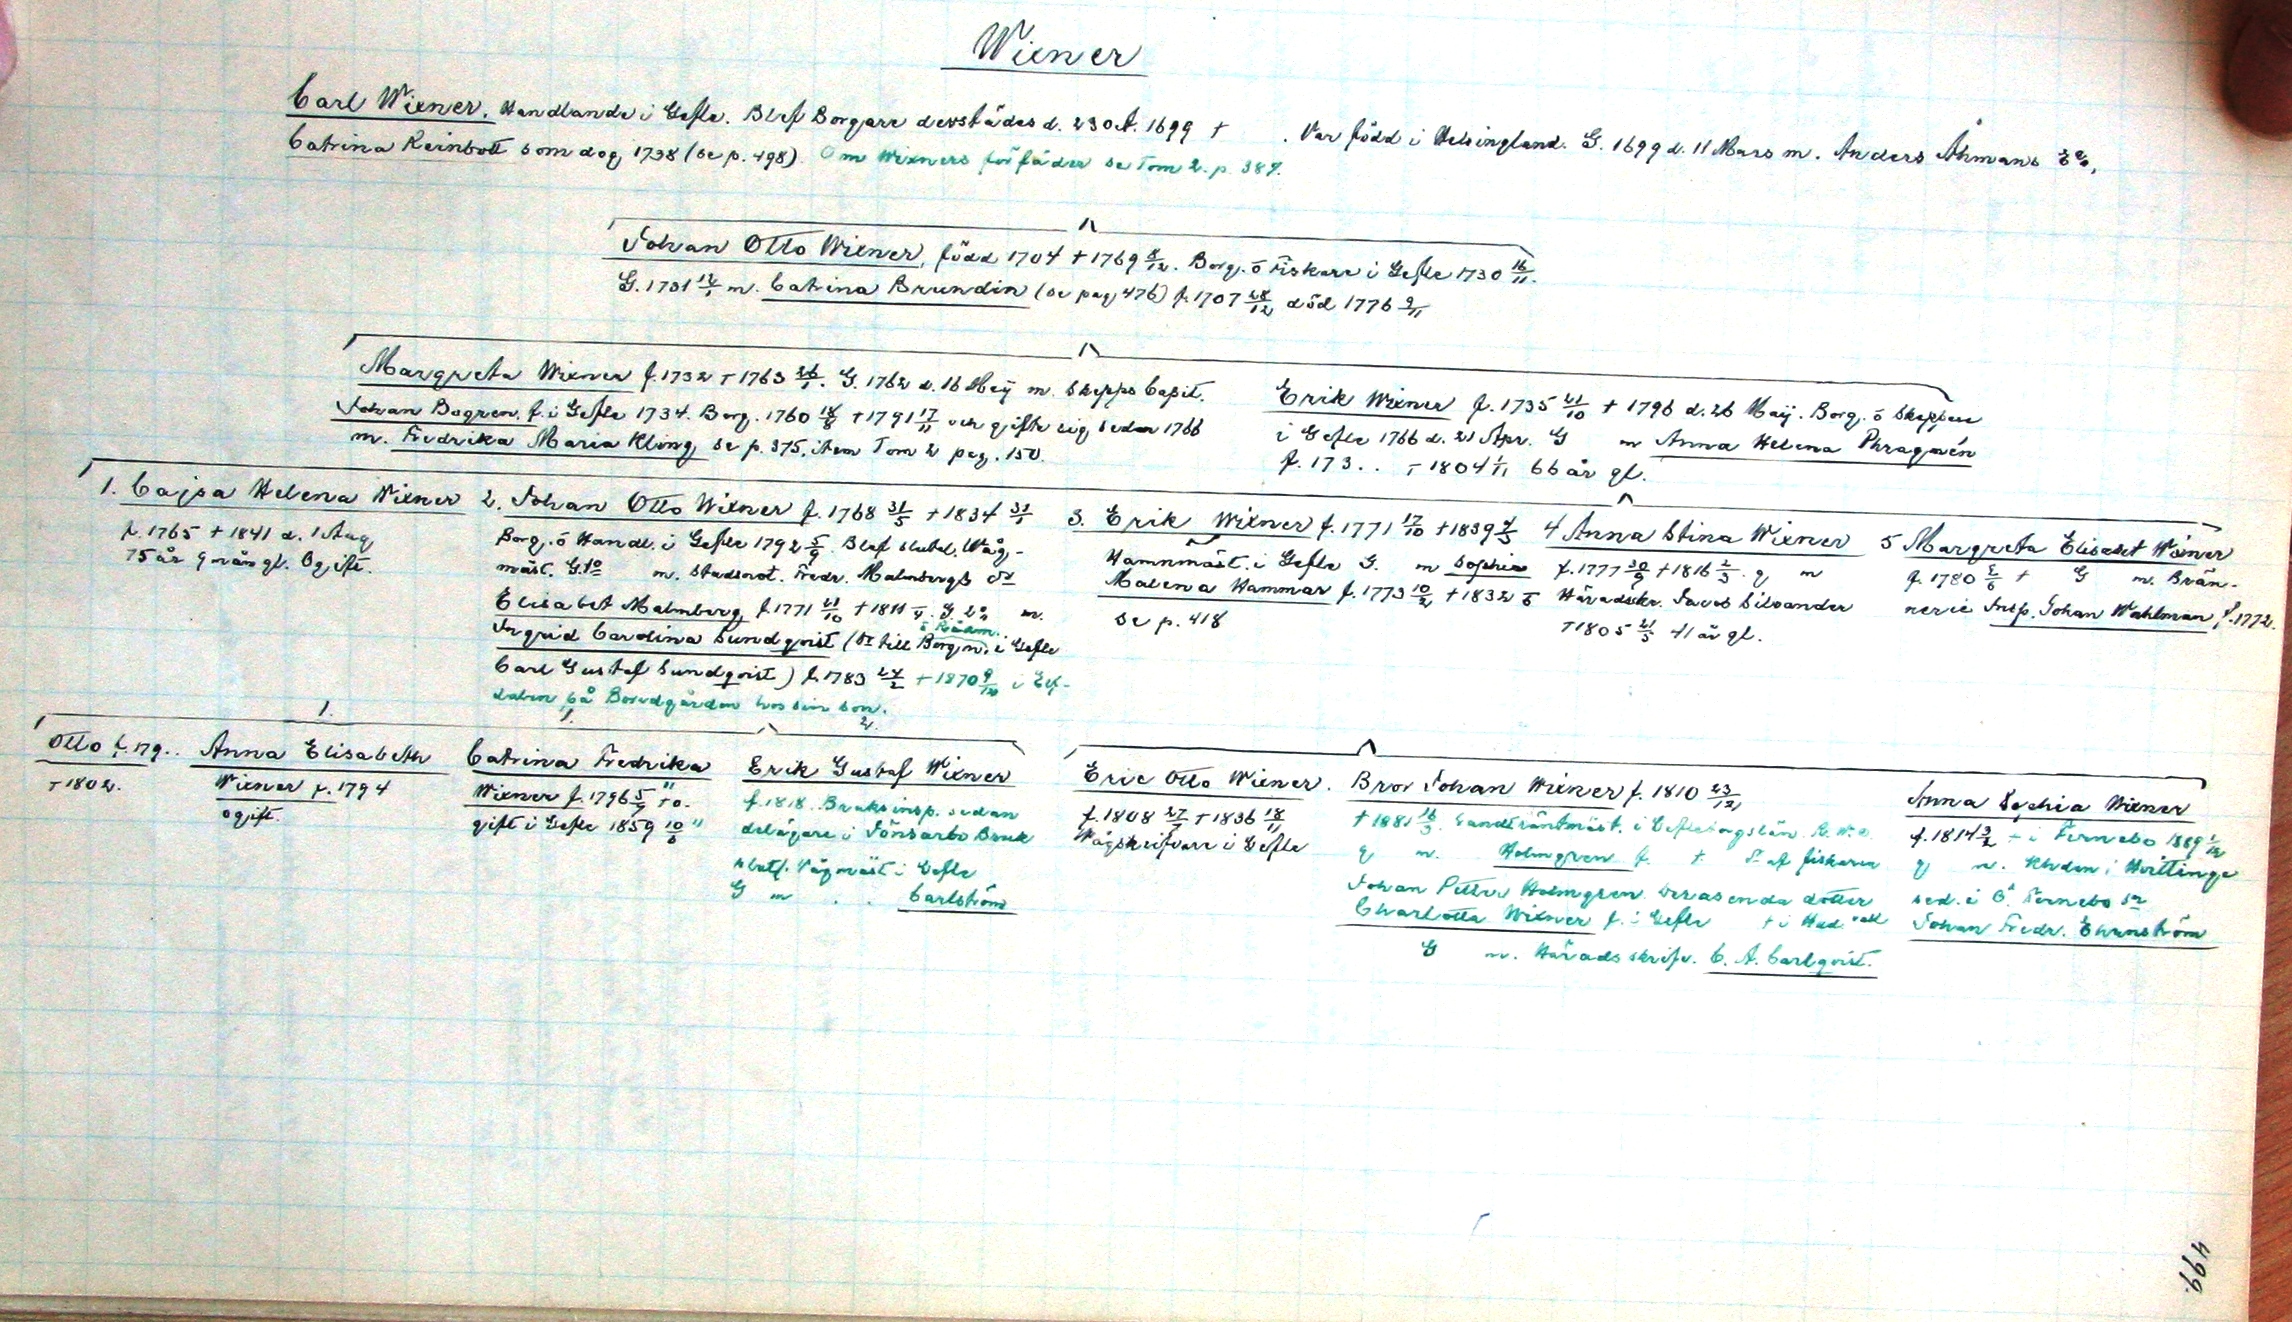 Wixner
Carl Wixner. Handlande i Gefle. Blef Borgare derstädes d. 23 Oct. 1699 † . Var född i Helsingland. G. 1699 d. 11 Mars m. Anders Åhmans Ea,
Catrina Reinbott som dog 1738 (se p. 498). Om Wixners förfäder se Tom 2. p. 387.
Johan Otto Wixner, född 1704 † 1769 8/12. Borg. o Fiskare i Gefle 1730 16/11.
G. 1731 12/1 m. Catrina Brundin (se pag 476) f. 1707 28/12 död 1776 9/11
Margreta Wixner f. 1732 † 1763 26/1. G. 1762 d. 16 Maij m. Skepps Capit.
Johan Bogren. f. i Gefle 1734. Borg. 1760 18/8 † 1791 17/11 och gifte sig sedan 1766
m. Fredrika Maria Kling, se p. 375, item Tom 2 pag. 150.
Erik Wixner f. 1735 21/10 † 1796 d. 26 Maij. Borg. o Skeppare
i Gefle 1766 d. 21 Apr. G m Anna Helena Phragmén
f. 173. . † 1804 1/11 66 år gl.
1. Cajsa Helena Wixner
f. 1765 † 1841 d. 1 Aug
75 år 9 mån gl. Ogift.
2. Johan Otto Wixner f. 1768 31/5 † 1834 31/1
Borg. o Handl. i Gefle 1792 5/9. Blef slutel. Wåg-
mäst. G. 1o m. Stadsnot. Fredr. Malmbergs Dr
Elisabet Malmberg, f. 1771 21/10 † 1811 /4. G 2o m.
o Rådm.
Ingrid Carolina Sundqvist (Dr till Borgm. i Gefle
Carl Gustaf Sundqvist) f. 1783 24/2 † 1870 9/12 i
dalen på Borudgården hos sin son.
3. Erik Wixner f. 1771 17/10 † 1839 4/3
Hamnmäst. i Gefle G. m Sophia
Malena Hammar f. 1773 10/2 † 1832
se p. 418
4 Anna Stina Wixner
f. 1777 30/9 † 1816 2/3. g m
Häradskr. Jacob Silvander
† 1805 21/5 41 år gl.
5 Margreta Elisabet Wixner
f. 1780 2/6 † G m. Brän-
neri Insp. Johan Wahlman f. 1772.
1. 1. 2.
Otto f. 179..
† 1802.
Anna Elisabeth
Wixner f. 1794
ogift.
Catrina Fredrika
Wixner f. 1796 5/7 † o-
gift i Gefle 1859 10/6
Erik Gustaf Wixner
f. 1818. Bruksinsp. sedan
delägare i Tönsarbo Bruk
slutl. Vågmäst i Gefle
G m . . Carlström
Eric Otto Wixner.
f. 1808 27/7 † 1836 18/11
Vågskrifvare i Gefle
Bror Johan Wixner f. 1810 23/12
† 1881 16/3. Landträntmäst. i Gefleborgs län. R. W. O.
g m. Holmgren f. † Dr af fiskaren
Johan Petter Holmgren. Deras enda dotter
Charlotta Wixner f. i Gefle † i
G m. Häradsskrifv. C. A. Carlqvist.
Anna Sophia Wixner
f. 1814 3/2 † i Fernebo 1889 1/12
g m. Khden i Hvittinge
sed. i Ö. Fernebo Dr
Johan Fredr. Ehrnström
499.